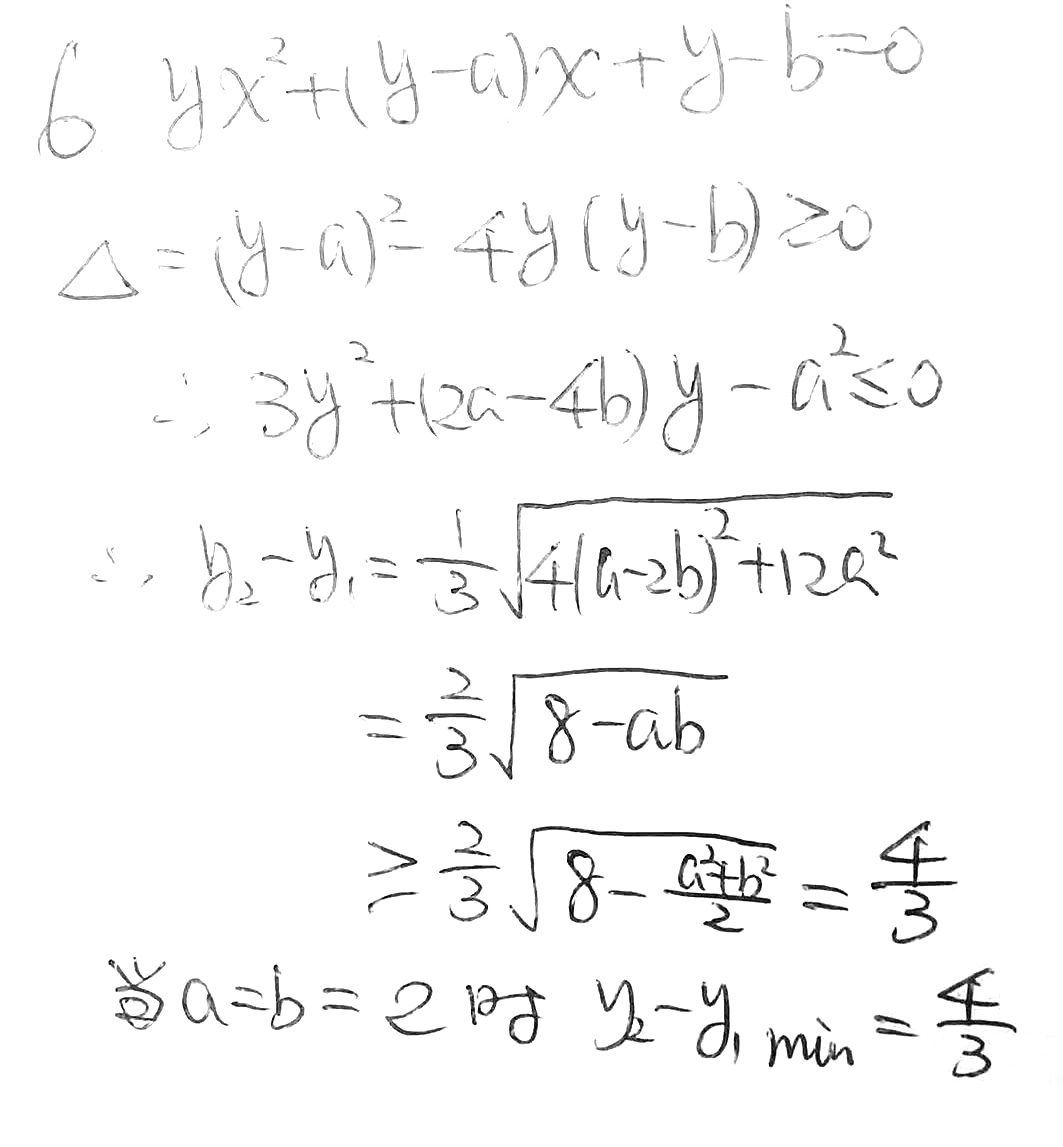 6 yx²+(y-a)x+y-b=0
Δ=(y-a)²-4y(y-b)≥0
∴ 3y²+(2a-4b)y-a²≤0
∴ y₂-y₁=1/3√(4(a-2b)²+12a²)
=2/3√(8-ab)
≥2/3√(8-(a²+b²)/2)=4/3
当a=b=2时 y₂-y₁ min=4/3